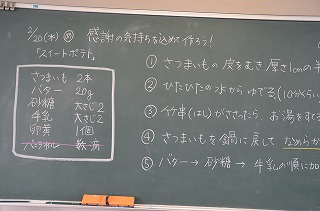 2/20(木) 感謝の気持ちを込めて作ろう!
「スイートポテト」
さつまいも 2本
バター 20g
砂糖 大さじ2
牛乳 大さじ2
卵黄 1個
① さつまいもの皮をむき厚さ1cmの半
② ひたひたの水からゆでる(10分くらい
③ 竹串(はし)がささったら、お湯をすてる
④ さつまいもを鍋に戻して なめらか
⑤ バター→砂糖→牛乳の順に加